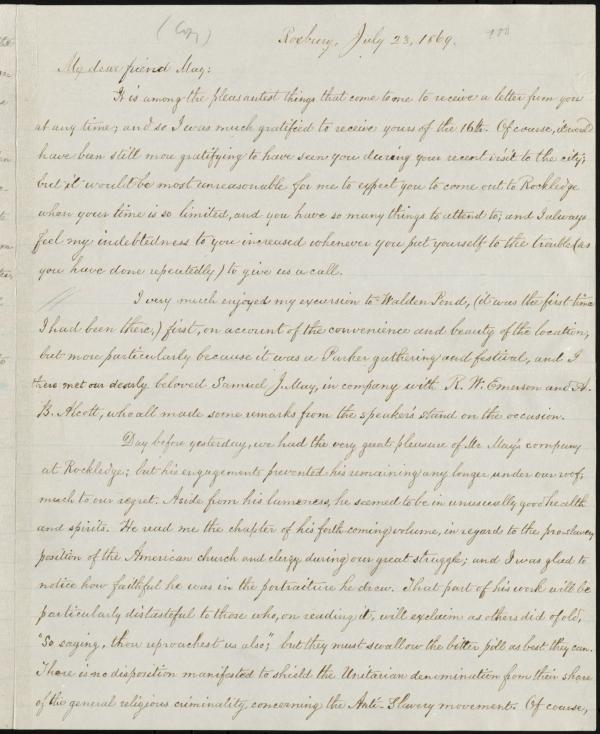 (Copy)
Roxbury, July 23, 1869.
My dear friend May:
It is among the pleasantest things that come to me to receive a letter from you
at any time; and so I was much gratified to receive yours of the 16th. Of course, it would
have been still more gratifying to have seen you during your recent visit to the city;
but it would be most unreasonable for me to expect you to come out to Rockledge
when your time is so limited, and you have so many things to attend to; and I always
feel my indebtedness to you increased whenever you put yourself to the trouble (as
you have done repeatedly) to give us a call.
I very much enjoyed my excursion to Walden Pond, (it was the first time
I had been there,) first, on account of the convenience and beauty of the location,
but more particularly because it was a Parker gathering and festival, and I
there met our dearly beloved Samuel J. May, in company with R. W. Emerson and A.
B. Alcott, who all made some remarks from the speaker's stand on the occasion.
Day before yesterday, we had the very great pleasure of Mr May's company
at Rockledge; but his engagements prevented his remaining any longer under our roof,
much to our regret. Aside from his lameness, he seemed to be in unusually good health
and spirits. He read me the chapter of his forthcoming volume, in regard to the pro-slavery
position of the American church and clergy during our great struggle; and I was glad to
notice how faithful he was in the portraiture he drew. That part of his work will be
particularly distasteful to those who, on reading it, will exclaim as others did of old,
"So saying, thou reproachest us also"; but they must swallow the bitter pill as best they can.
There is no disposition manifested to shield the Unitarian denomination from their share
of the general religious criminality concerning the Anti-Slavery movement. Of course,